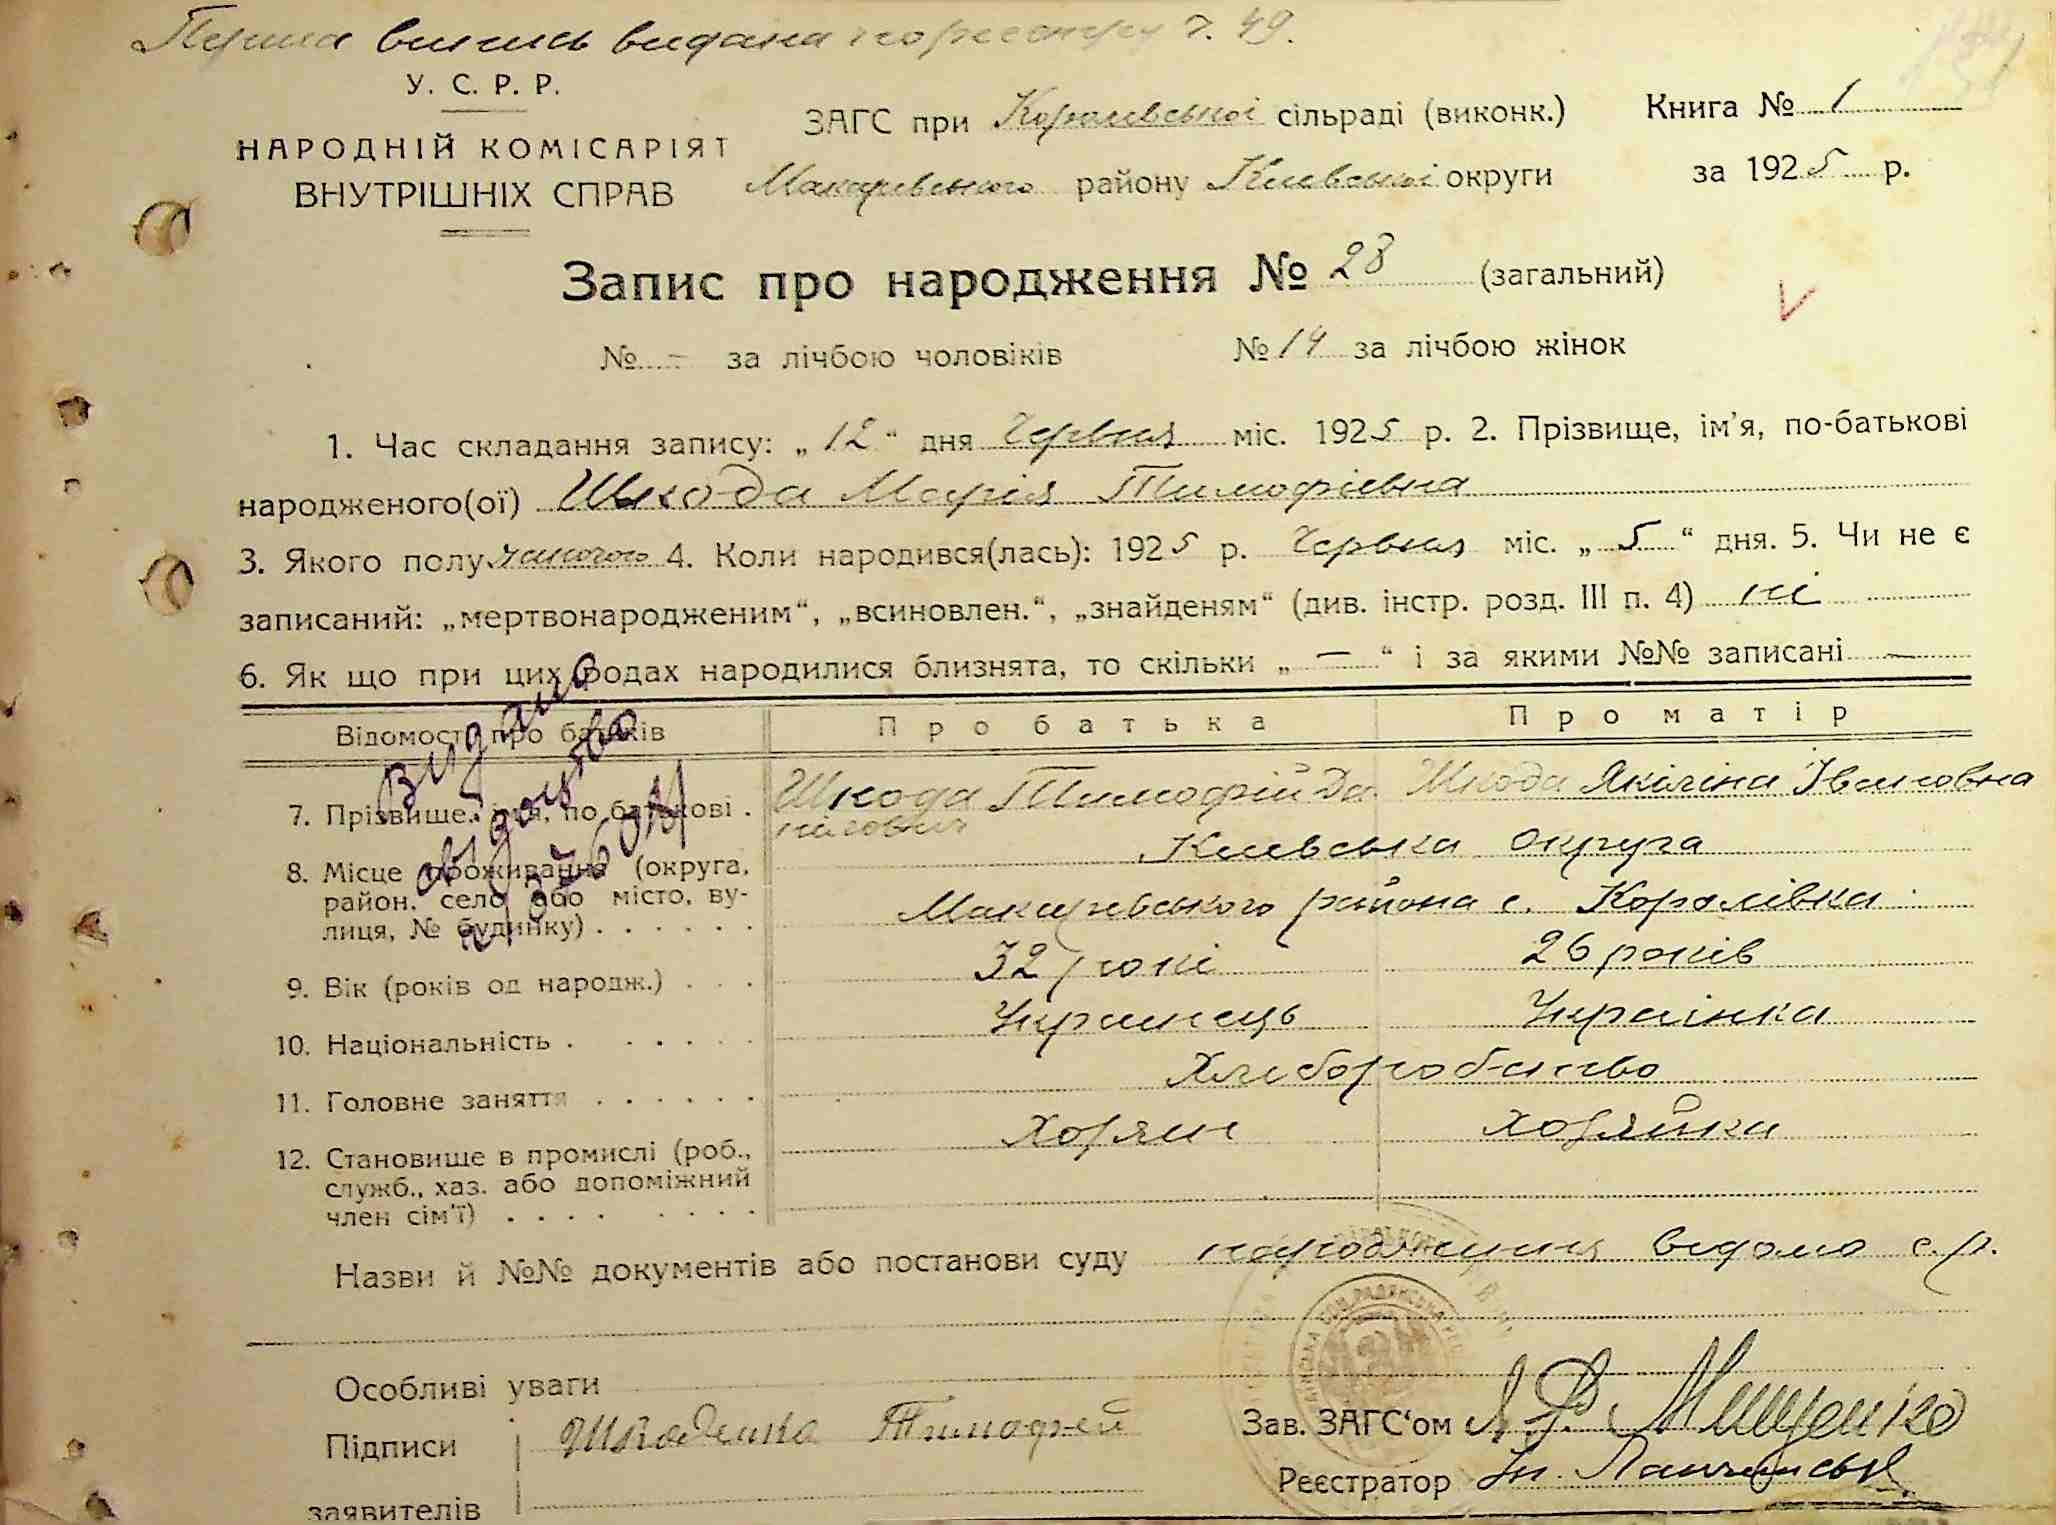 Перша випись видана по реєстру ч. 49.
У. С. Р. Р.
НАРОДНІЙ КОМІСАРІЯТ
ВНУТРІШНІХ СПРАВ
ЗАГС при Королівської сільраді (виконк.)
Макарівського району Київської округи
Книга № 1
за 1925 р.
Запис про народження № 28 (загальний)
№ - за лічбою чоловіків № 14 за лічбою жінок
1. Час складання запису: „ 12 “ дня Червня міс. 1925 р. 2. Прізвище, ім'я, по-батькові
народженого(ої) Шкода Марія Тимофієвна
3. Якого полу жіночого 4. Коли народився(лась): 1925 р. Червня міс. „ 5 “ дня. 5. Чи не є
записаний: „мертвонародженим“, „всиновлен.“, „знайденям“ (див. інстр. розд. III п. 4) ні
6. Як що при цих родах народилися близнята, то скільки „ — “ і за якими №№ записані —
Відомості про батьків Про батька Про матір
7. Прізвище, ім'я, по батькові . Шкода Тимофій Да Шкода Якіліна Івановна
нілович
8. Місце проживання (округа, Київська округа
район, село або місто, ву- Макарівського района с. Королівка
лиця, № будинку) . . . . . .
9. Вік (років од народж.) . . . 32 рокі 26 років
10. Національність . . . . . . Українець Українка
11. Головне заняття . . . . . . Хлиборобство
12. Становище в промислі (роб., Хозяін хозяйка
служб., хаз. або допоміжний
член сім'ї) . . . . . . . .
Видано
свідоцтво
Назви й №№ документів або постанови суду народження відомо с.р.
Особливі уваги
Підписи Тимофей
заявителів
Зав. ЗАГС'ом Мищенко
Реєстратор